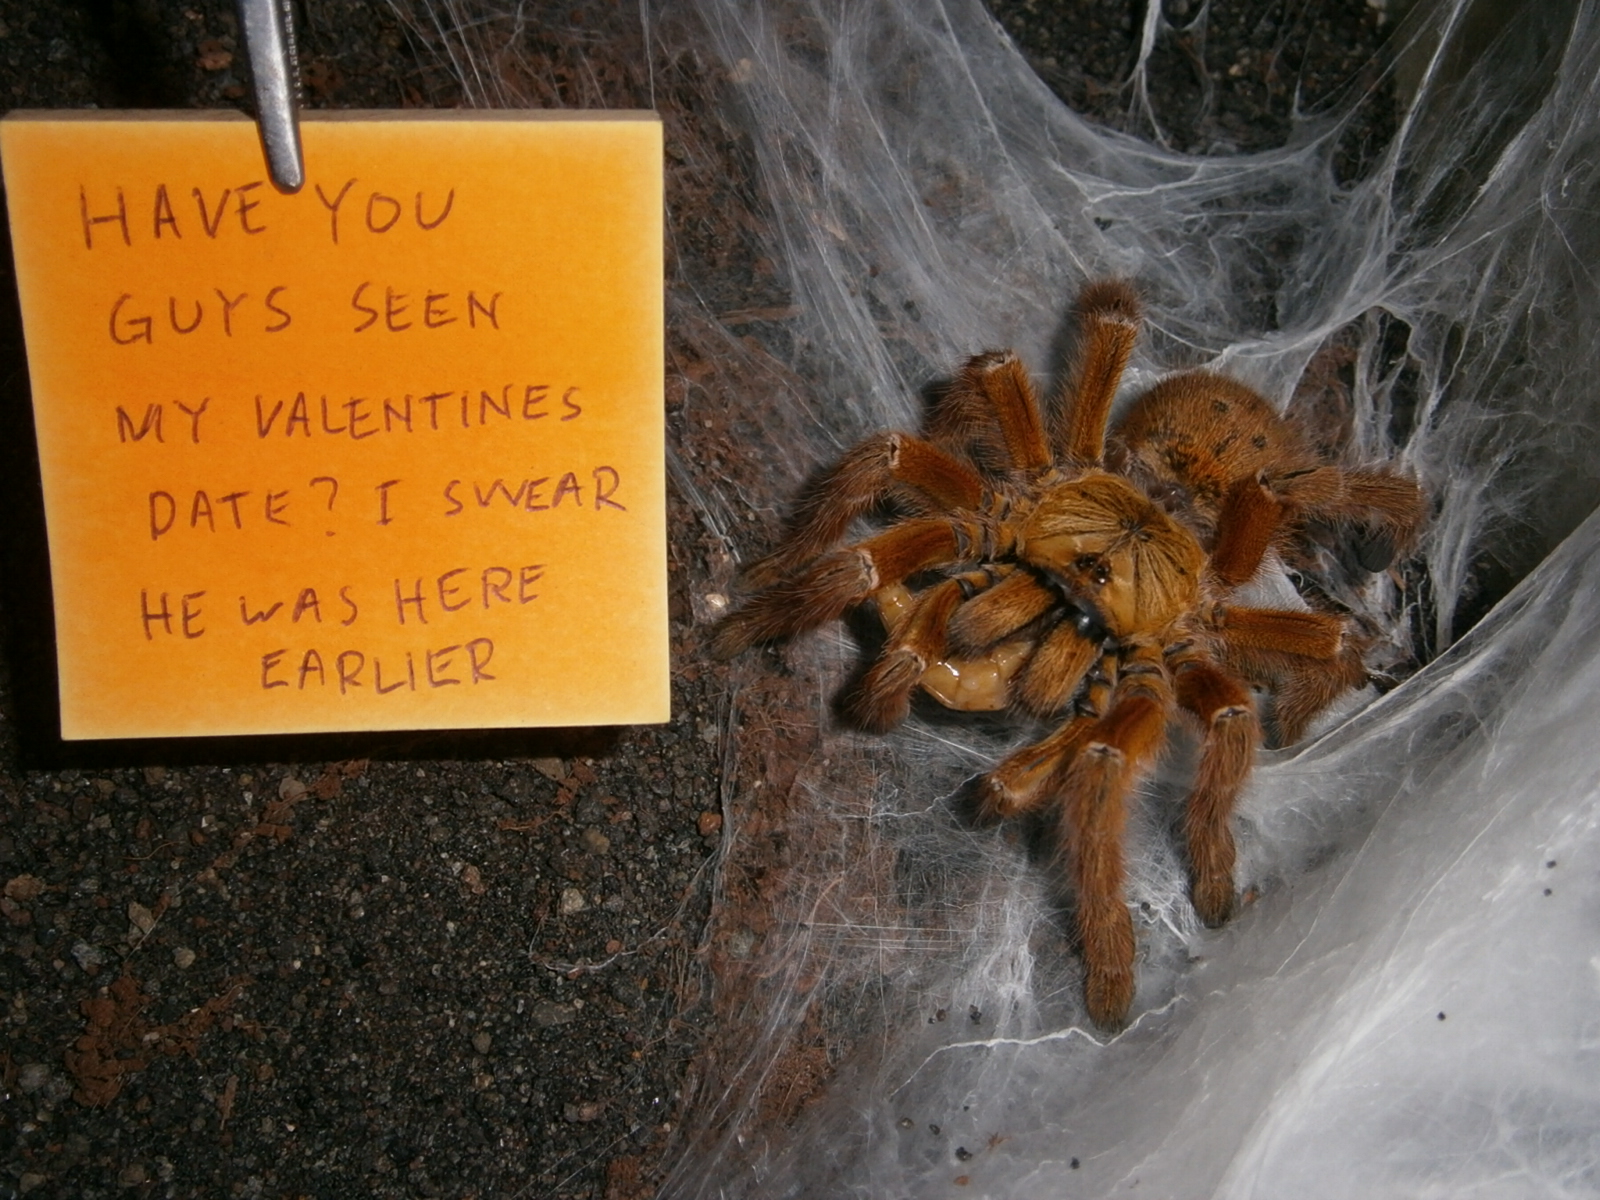 HAVE YOU
GUYS SEEN
MY VALENTINES
DATE? I SWEAR
HE WAS HERE
EARLIER